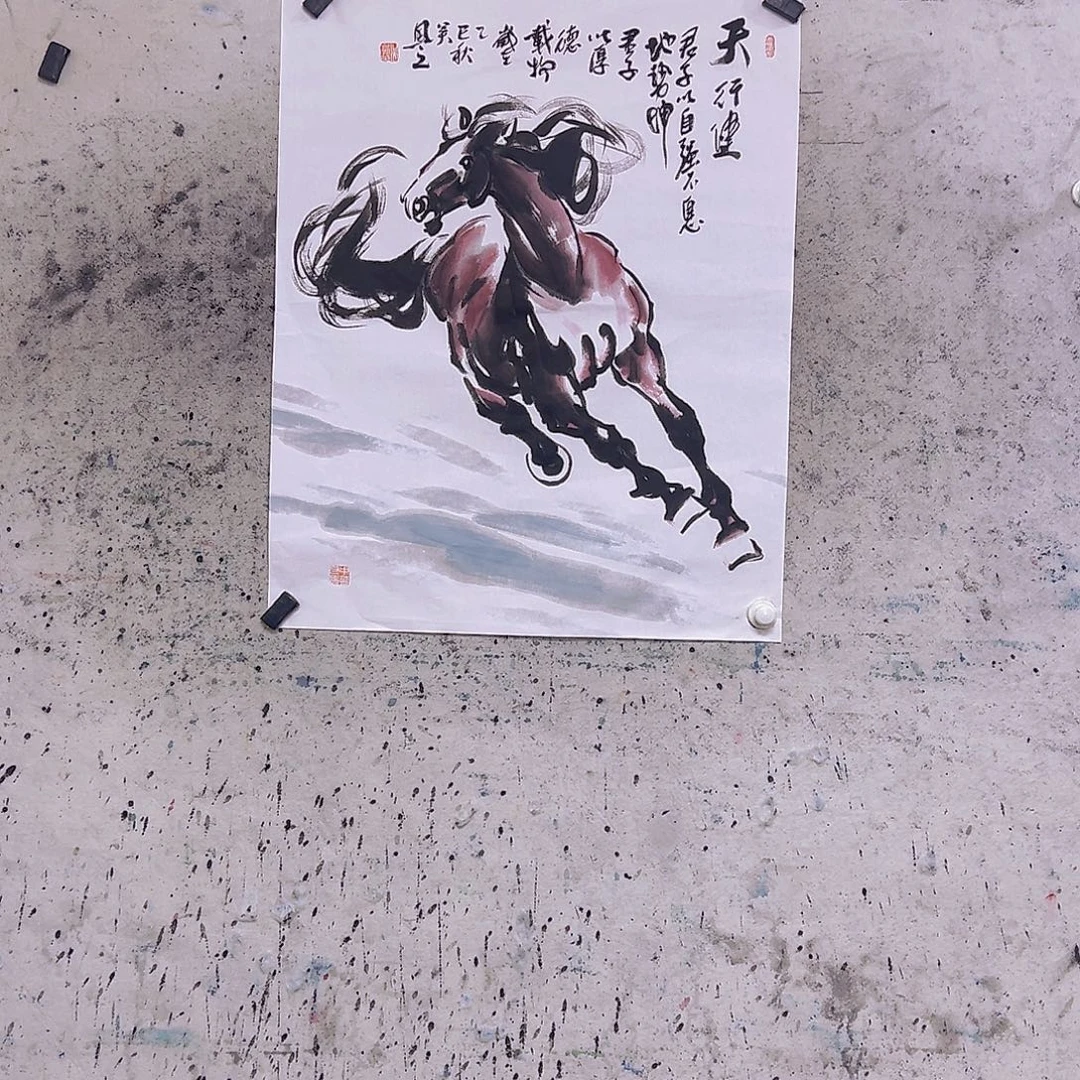 天行健
君子以自强不息
地勢坤
君子
以厚
德
載物
歲在
乙
巳秋